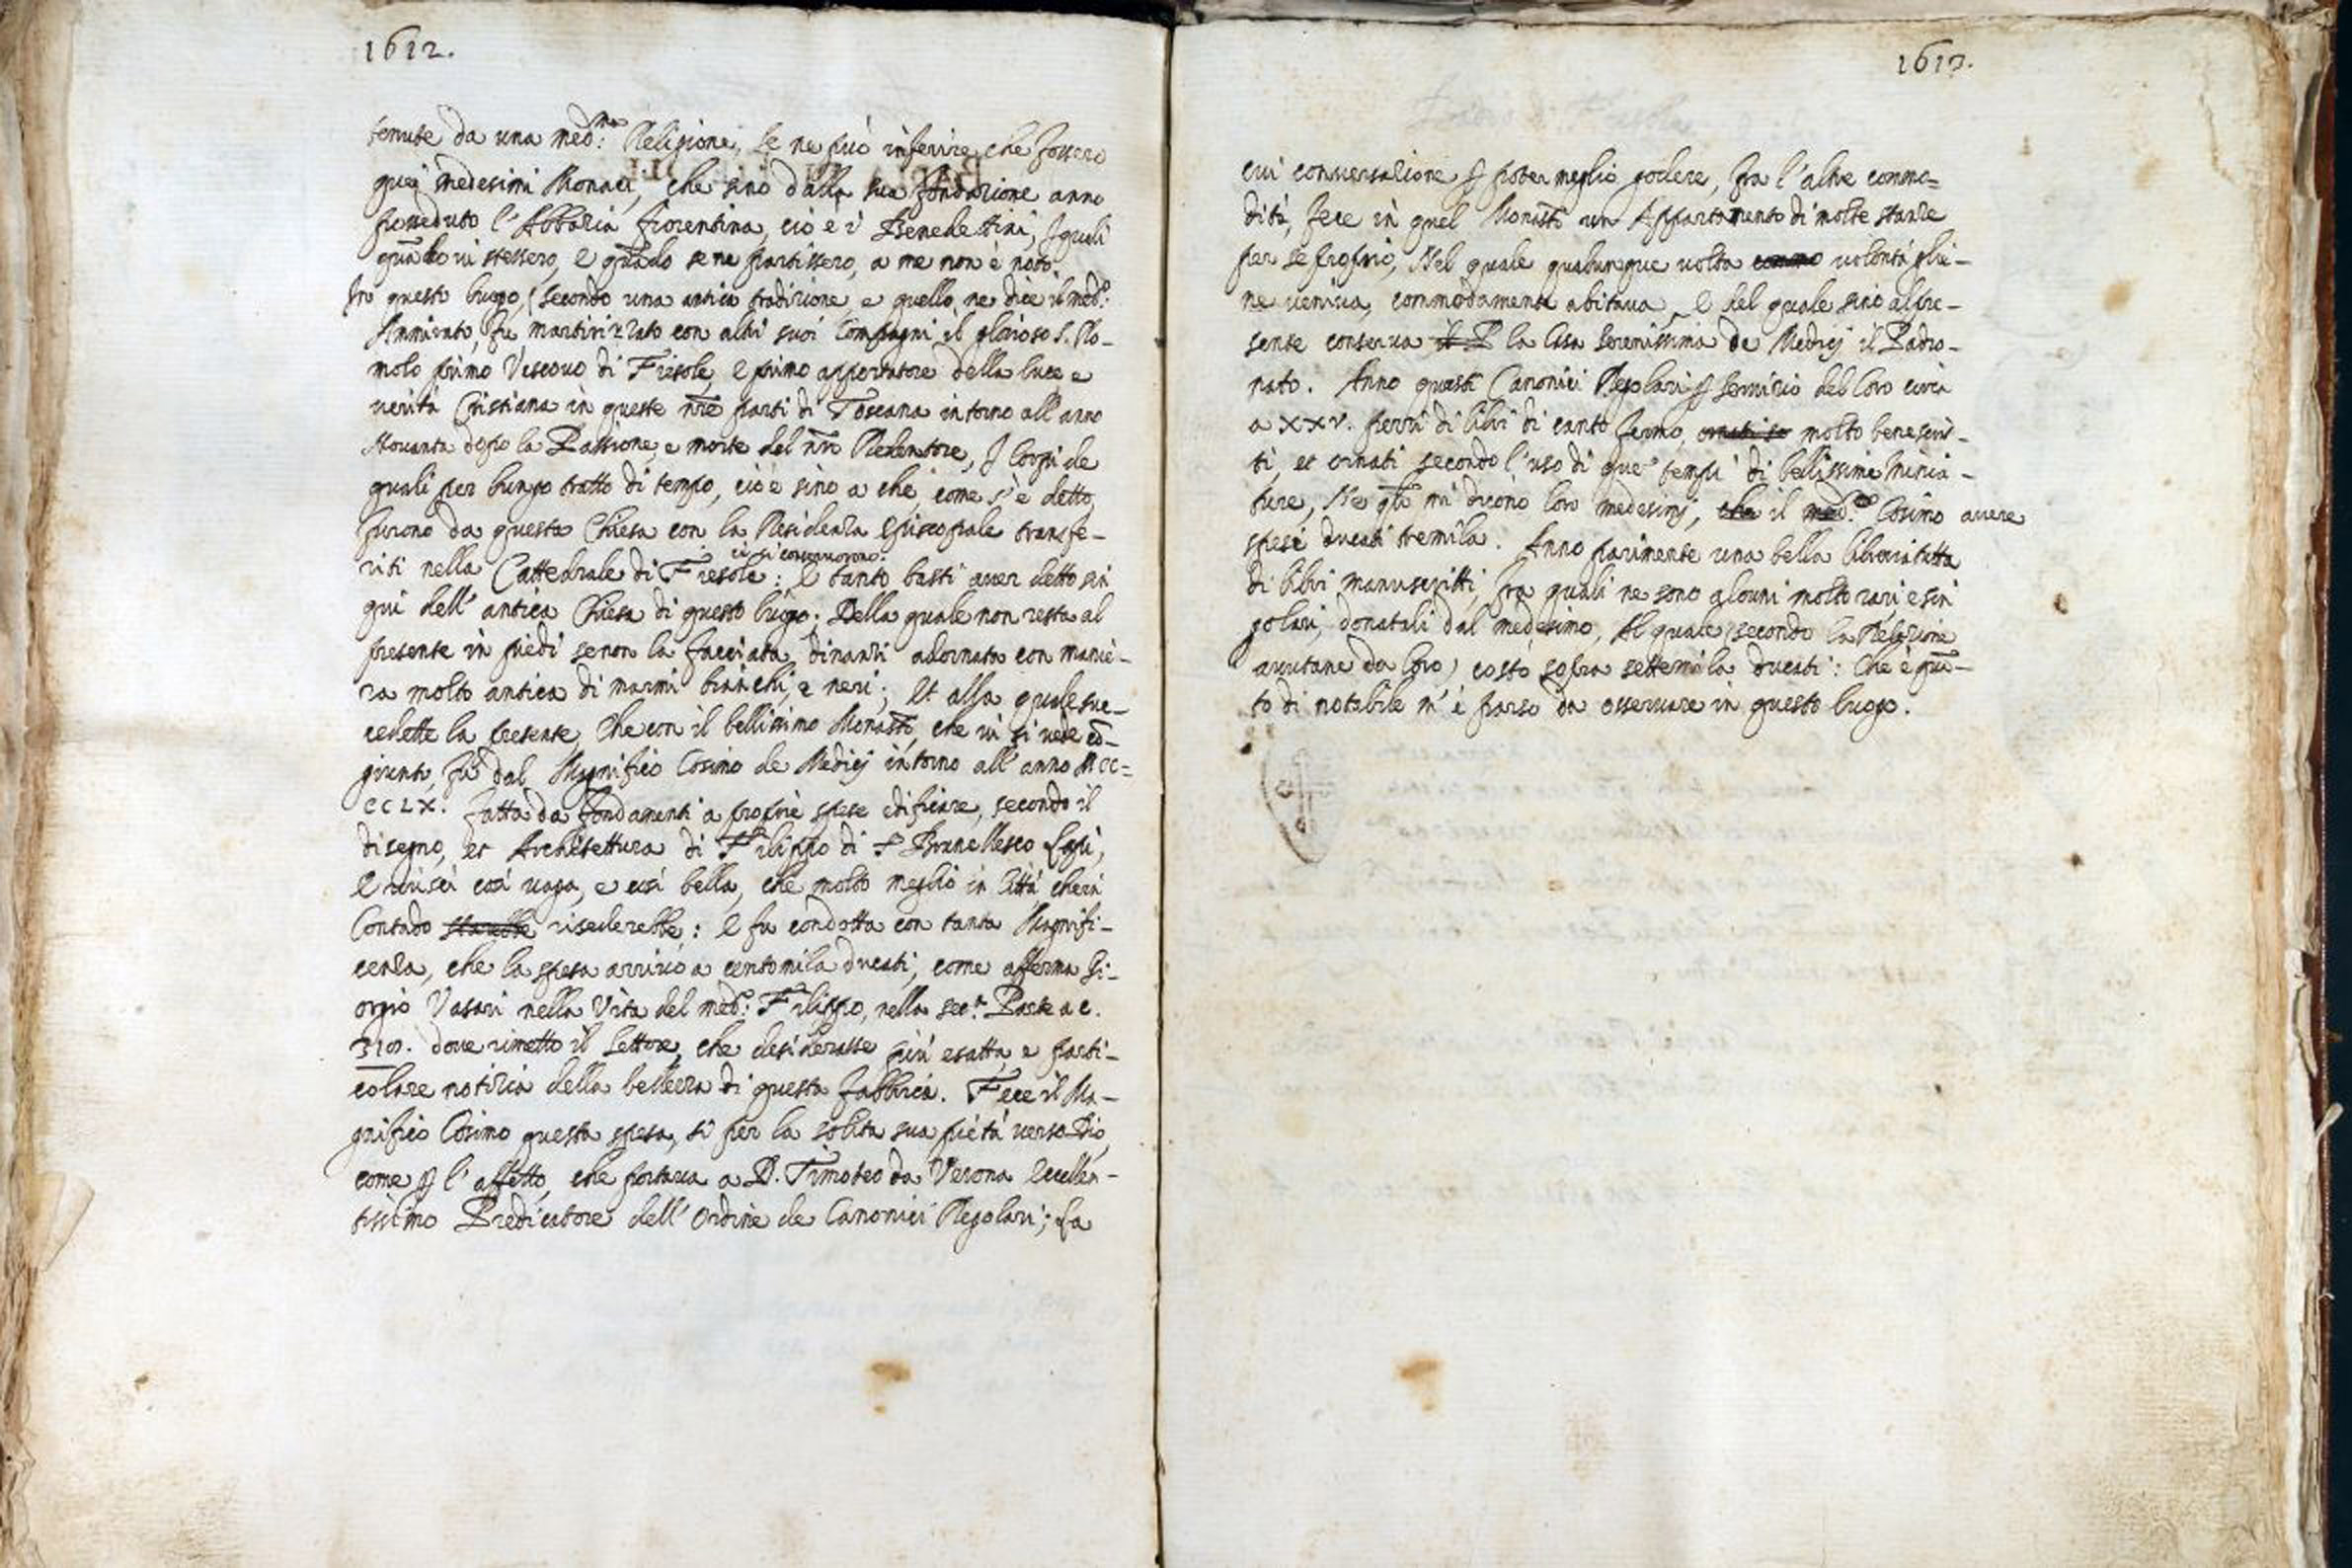 1612.
tenute da una med.ma Religione, se ne può inferire che fossero
quei medesimi Monaci, che sino dalla sua fondazione anno
posseduto l'Abbazia fiorentina, ciò è i Benedettini, I quali
quādo vi stessero, e quādo se ne partissero, a me non è noto.
In questo luogo, (secondo una antica tradizione e quello, ne dice il med.o
Ammirato, fu martirizzato con altri suoi Compagni il glorioso S. Ro-
molo primo Vescovo di Fiesole, e primo apportatore della luce e
verità Cristiana in queste nr̄e parti di Toscana intorno all'anno
Novanta dopo la Passione, e morte del nr̄o Redentore, I Corpi de
quali per lungo tratto di tempo, ciò è sino a che, come s'è detto,
furono da questa Chiesa con la Residenza Episcopale transfe-
riti nella Cattedrale di Fiesole ci si conservorono: E tanto basti aver detto sin
qui dell'antica Chiesa di questo luogo; Della quale non resta al
presente in piedi se non la facciata dinanzi adornata con manie-
ra molto antica di marmi bianchi, e neri; Et alla quale suc-
cedette la presente, che con il bellissimo Monast.o, che vi si vede cō-
giunto, fu dal Magnifico Cosimo de Medici intorno all'anno MCC=
CCLX. fatta da fondamenti a proprie spese edificare, secondo il
disegno, et Architettura di Filippo di s. Brunellesco Lapi,
E riuscì così vaga, e così bella, che molto meglio in Città che in
Contado starebbe risederebbe: E fu condotta con tanta Magnifi-
cenza, che la spesa arrivò a centomila ducati, come afferma Gi-
orgio Vasari nella Vita del med.o Filippo, nella sec.a Parte a c.
dove rimetto il Lettore, che desiderasse più esatta, e parti-
colare notizia della bellezza di questa fabbrica. Fece il Ma-
gnifico Cosimo questa spesa, sì per la solita sua pietà verso Dio,
come p l'affetto, che portava a D. Timoteo da Verona Eccellen-
tissimo Predicatore dell'Ordine de Canonici Regolari; La
1613.
cui conversazione p poter meglio godere, fra l'altre commo=
dità, fece in quel Monast.o un Appartamento di molte stanze
per se proprio, Nel quale qualunque volta volontà glie-
ne veniva, commodamente abitava, e del quale sino al pre-
sente conserva il P la Casa Serenissima de Medici il Padro-
nato. Anno questi Canonici Regolari p servizio del Coro circa
a XXV. pezzi di libri di canto fermo, ornati se molto bene scrit-
ti, et ornati secondo l'uso di que' tempi di bellissime minia-
ture, Ne q.li mi dicono loro medesimi, che il med.o Cosimo avere
spesi ducati tremila. Anno parimente una bella libreria tutta
di libri manuscritti, fra quali ne sono alcuni molto rari, e sin
golari, donatali dal medesimo, Al quale (secondo la Relazione
avutane da loro) costò sopra settemila ducati: Che è quā-
to di notabile m'è parso da osservare in questo luogo.